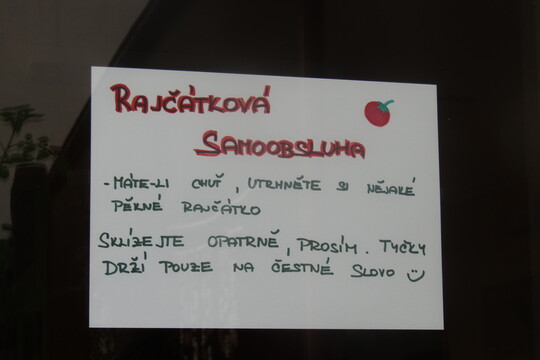 RAJČÁTKOVÁ
SAMOOBSLUHA
- MÁTE-LI CHUŤ, UTRHNĚTE SI NĚJAKÉ
PĚKNÉ RAJČÁTKO
SKLÍZEJTE OPATRNĚ, PROSÍM. TYČKY
DRŽÍ POUZE NA ČESTNÉ SLOVO :)